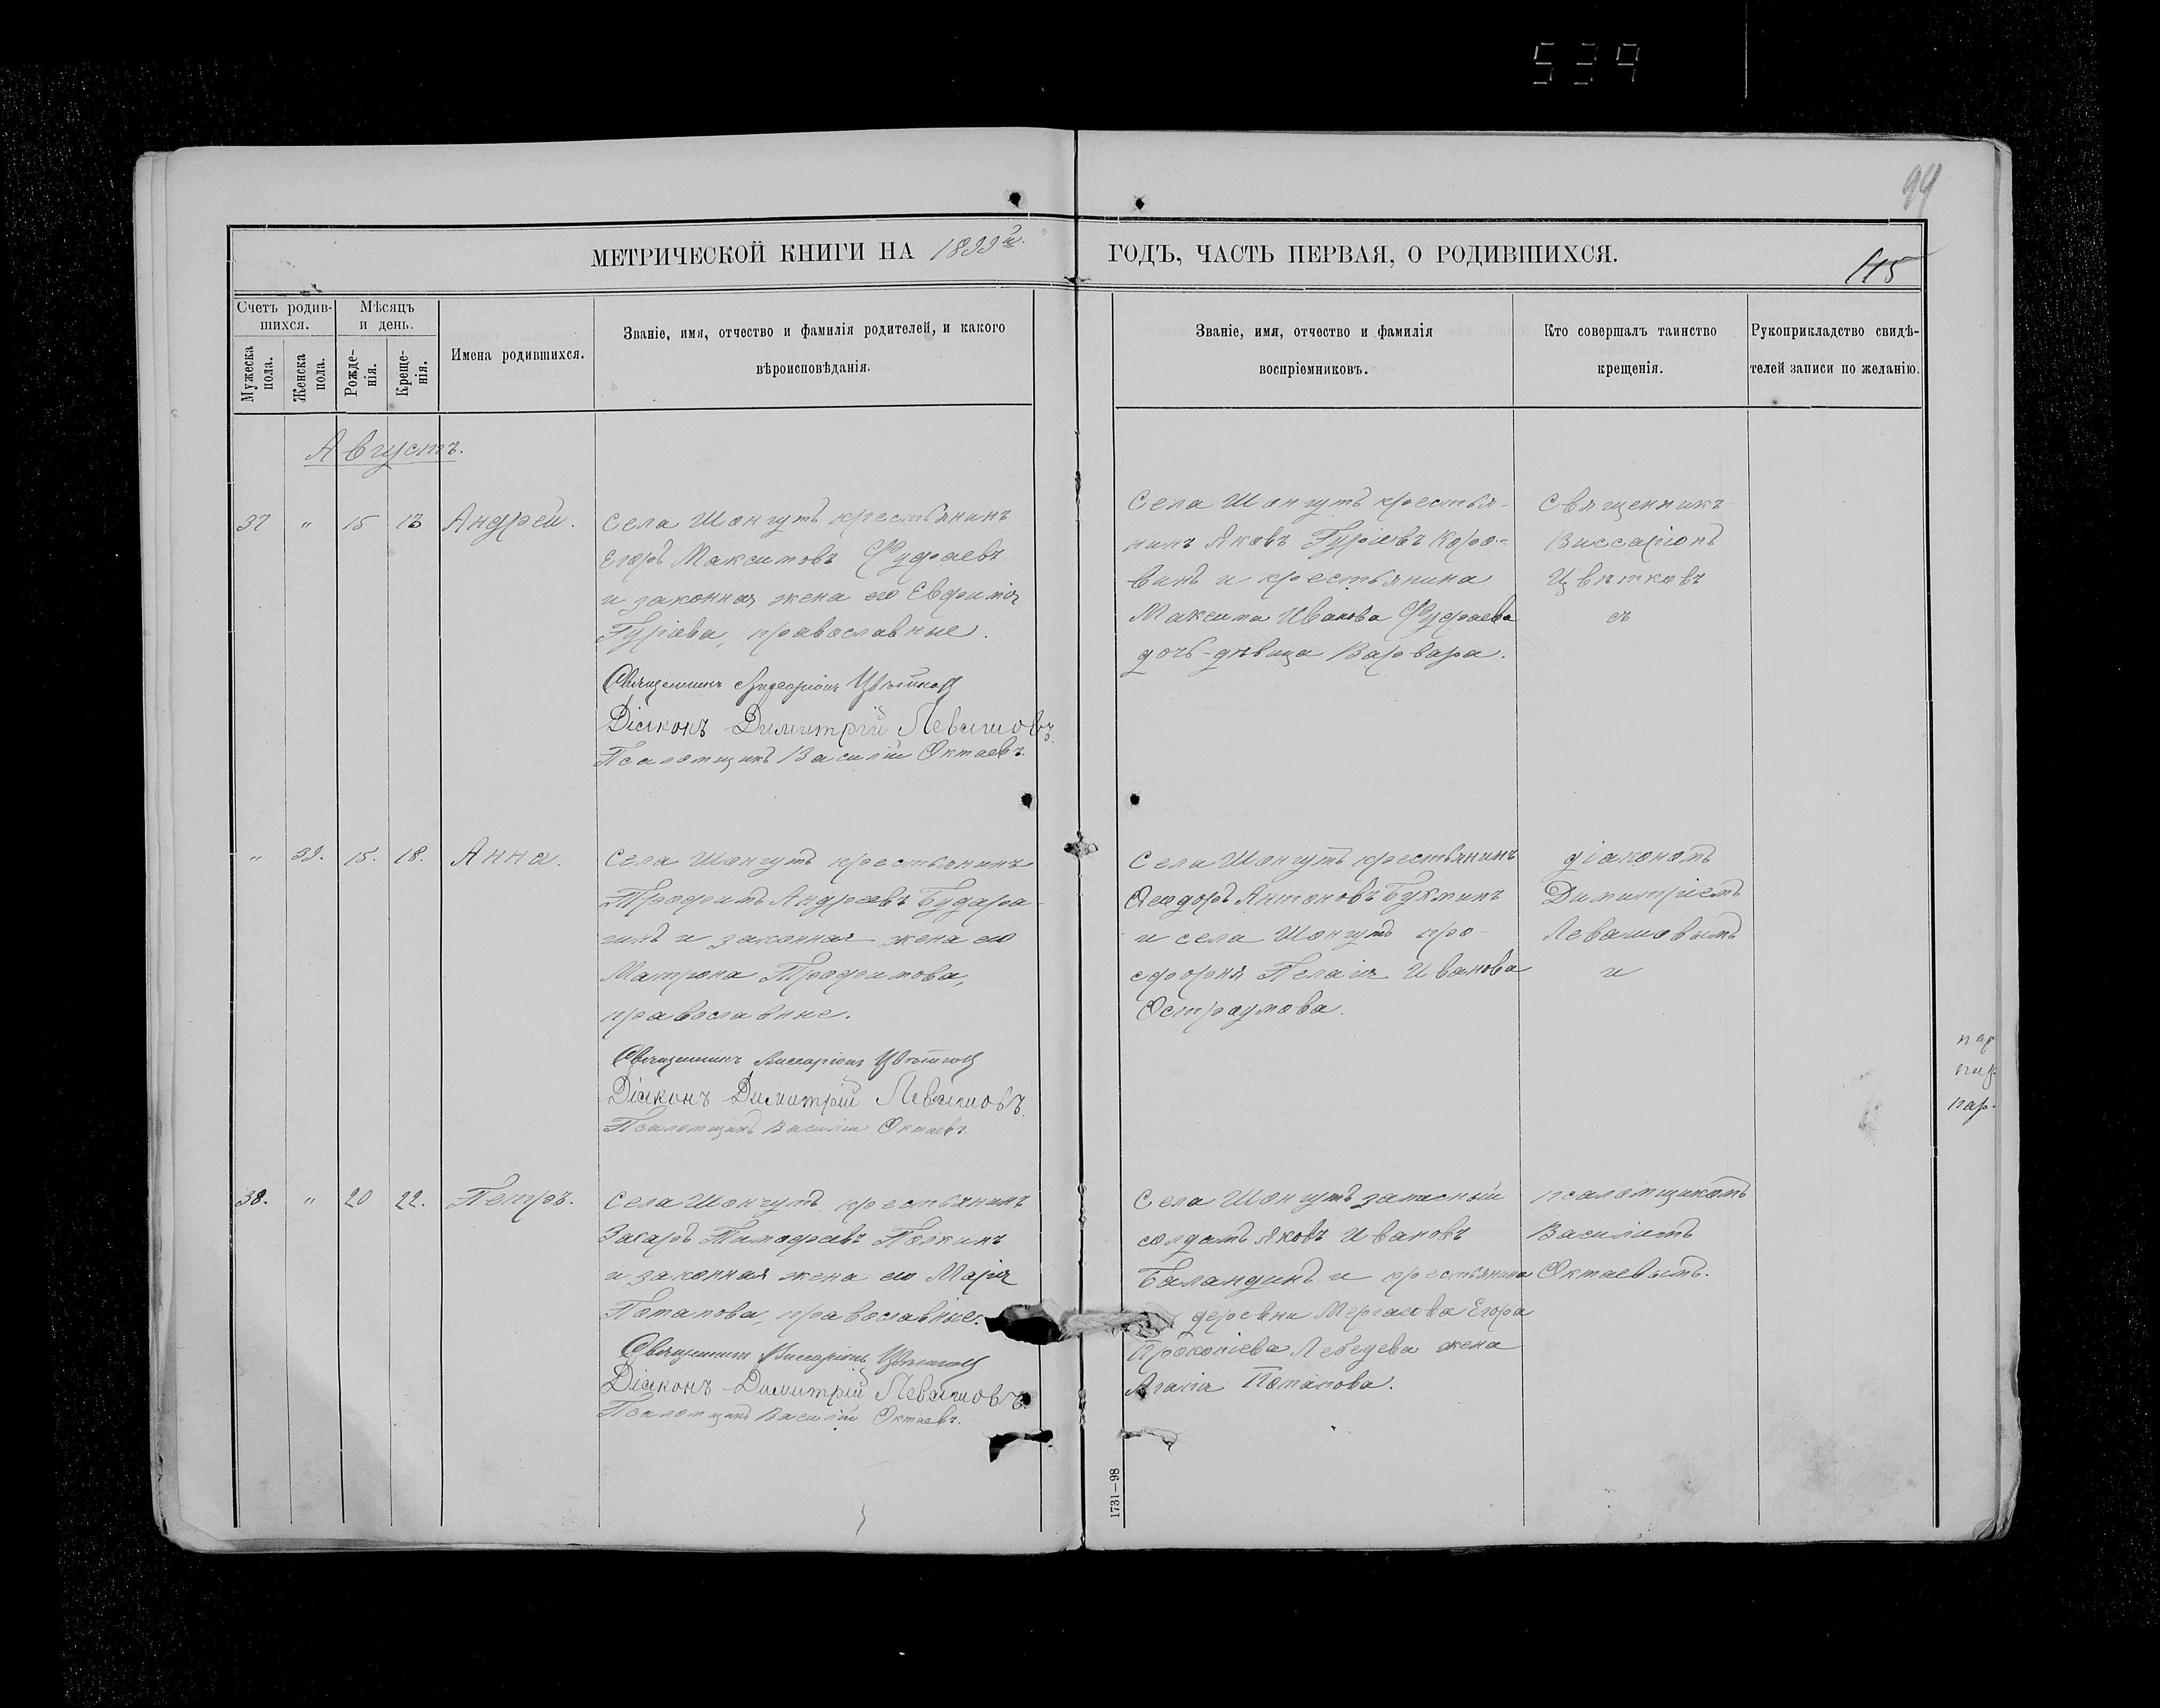 539
94
МЕТРИЧЕСКОЙ КНИГИ НА 1899й. ГОДЪ, ЧАСТЬ ПЕРВАЯ, О РОДИВШИХСЯ.
115
Счетъ родив-
шихся.
Мѣсяцъ
и день.
Мужеска
пола.
Женска
пола.
Рожде-
нія.
Креще-
нія.
Имена родившихся.
Званіе, имя, отчество и фамилія родителей, и какого
вѣроисповѣданія.
Званіе, имя, отчество и фамилія
воспріемниковъ.
Кто совершалъ таинство
крещенія.
Рукоприкладство свидѣ-
телей записи по желанію.
Августъ.
37 " 15 Андрей.
Села Шонгутъ крестьянинъ
Егоръ Максимовъ Фуфаевъ
и законная жена его Евфимія
Гуріева, православные.
Священникъ Виссаріонъ Цвѣтковъ
Діаконъ Димитрій Левашовъ.
Псаломщикъ Василій Октаевъ.
Села Шонгутъ крестья-
нинъ Яковъ Гуріевъ Коро-
винъ и крестьянина
Максима Иванова Фуфаева
дочь-дѣвица Варвара.
Священникъ
Виссаріонъ
Цвѣтковъ
съ
" 39. 15. 18. Анна.
Села Шонгутъ крестьянинъ
Трофимъ Андреевъ Бударa-
гинъ и законная жена его
Матрона Трофимова,
православные.
Священникъ Виссаріонъ Цвѣтковъ
Діаконъ Димитрій Левашовъ.
Псаломщикъ Василій Октаевъ.
Села Шонгутъ крестьянинъ
Ѳеодоръ Антоновъ Букминъ
и села Шонгутъ про-
сфорня Пелагія Иванова
Остроумова.
діакономъ
Димитріемъ
Левашовымъ
и
пар
пар
пар.
38. " 20 22. Петръ.
Села Шонгутъ крестьянинъ
Захаръ Тимофеевъ Полкинъ
и законная жена его Марія
Потапова, православные.
Священникъ Виссаріонъ Цвѣтковъ
Діаконъ Димитрій Левашовъ.
Псаломщикъ Василій Октаевъ.
Села Шонгутъ запасный
солдатъ Яковъ Ивановъ
Баландинъ и крестьянина
деревни Егора
Прокопіева Лебедева жена
Агапія Потапова.
псаломщикомъ
Василіемъ
Октаевымъ.
1731—98